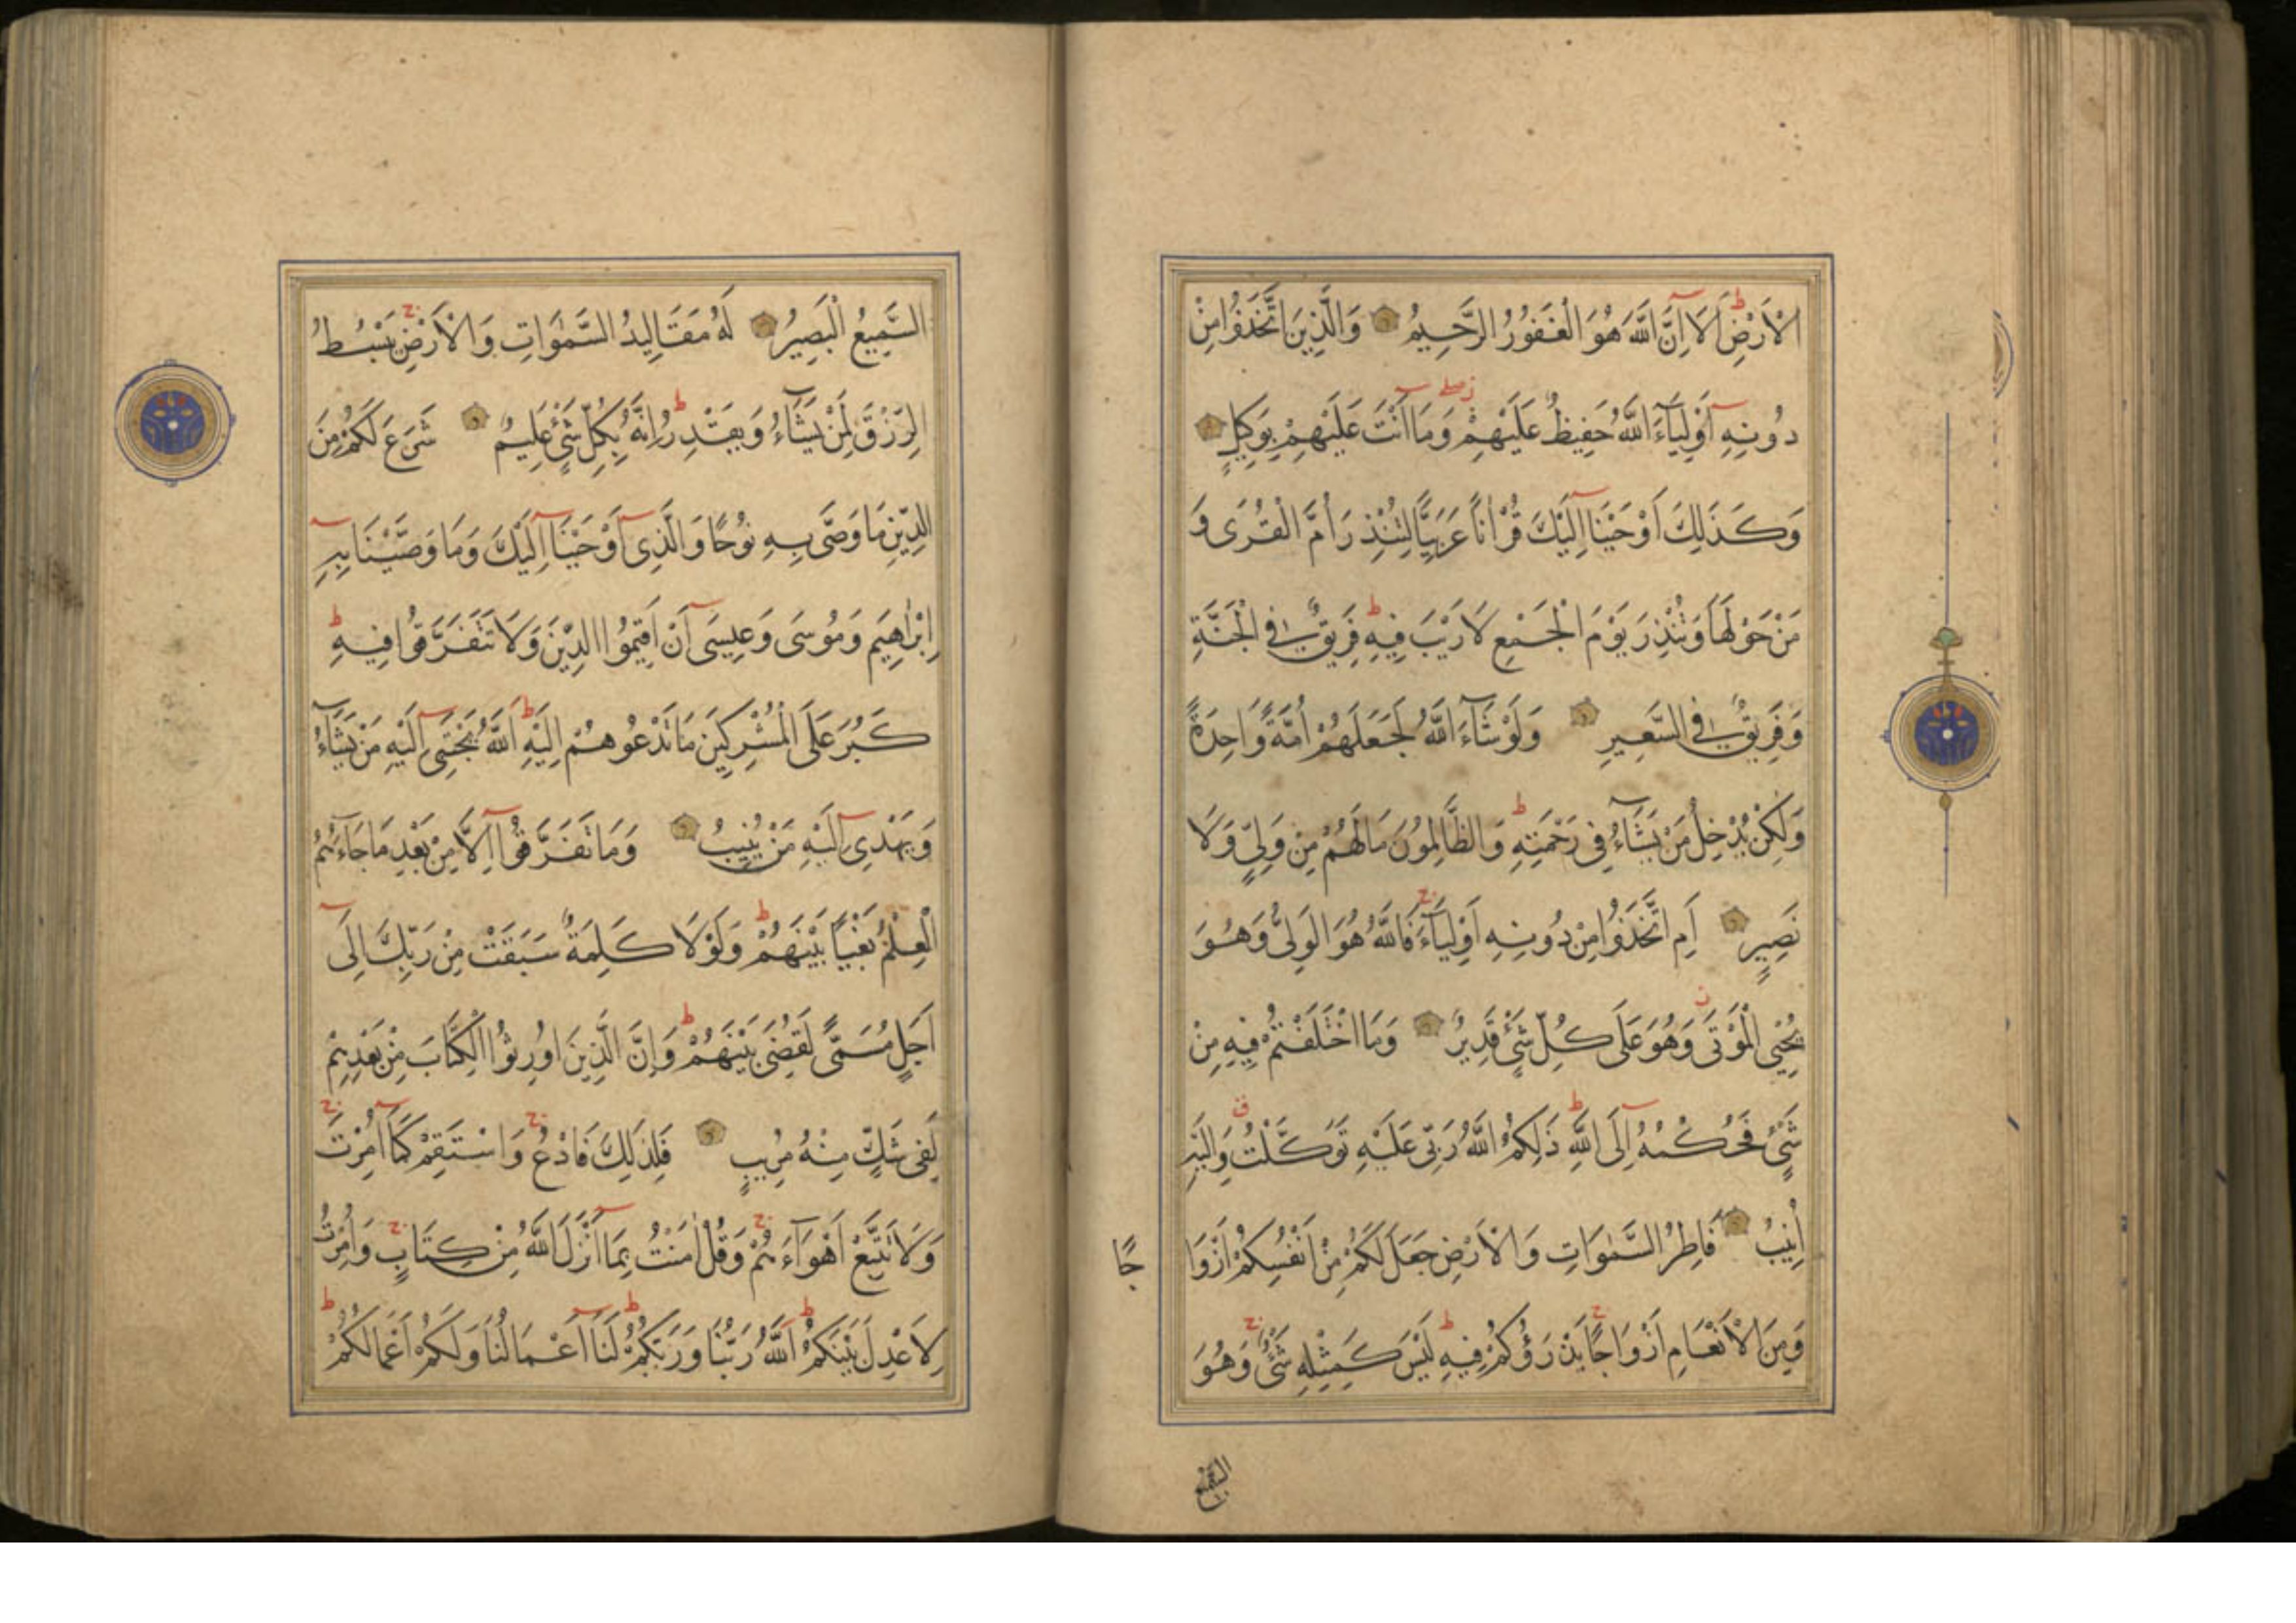 الْاَرْضِ اَلَا اِنَّ اللّٰهَ هُوَ الْغَفُورُ الرَّحِيمُ وَالَّذِينَ اتَّخَذُوا مِنْ
دُونِهِ اَوْلِيَاءَ اللّٰهُ حَفِيظٌ عَلَيْهِمْ وَمَا اَنْتَ عَلَيْهِمْ بِوَكِيلٍ
وَكَذَلِكَ اَوْحَيْنَا اِلَيْكَ قُرْاٰنًا عَرَبِيًّا لِتُنْذِرَ اُمَّ الْقُرَى وَ
مَنْ حَوْلَهَا وَتُنْذِرَ يَوْمَ الْجَمْعِ لَا رَيْبَ فِيهِ فَرِيقٌ فِي الْجَنَّةِ
وَفَرِيقٌ فِي السَّعِيرِ وَلَوْ شَاءَ اللّٰهُ لَجَعَلَهُمْ اُمَّةً وَاحِدَةً
وَلَكِنْ يُدْخِلُ مَنْ يَشَاءُ فِي رَحْمَتِهِ وَالظَّالِمُونَ مَا لَهُمْ مِنْ وَلِيٍّ وَلَا
نَصِيرٍ اَمِ اتَّخَذُوا مِنْ دُونِهِ اَوْلِيَاءَ فَاللّٰهُ هُوَ الْوَلِيُّ وَهُوَ
يُحْيِي الْمَوْتَى وَهُوَ عَلَى كُلِّ شَيْءٍ قَدِيرٌ وَمَا اخْتَلَفْتُمْ فِيهِ مِنْ
شَيْءٍ فَحُكْمُهُ اِلَى اللّٰهِ ذَلِكُمُ اللّٰهُ رَبِّي عَلَيْهِ تَوَكَّلْتُ وَاِلَيْهِ
اُنِيبُ فَاطِرُ السَّمٰوَاتِ وَالْاَرْضِ جَعَلَ لَكُمْ مِنْ اَنْفُسِكُمْ اَزْوَا
جًا
وَمِنَ الْاَنْعَامِ اَزْوَاجًا يَذْرَؤُكُمْ فِيهِ لَيْسَ كَمِثْلِهِ شَيْءٌ وَهُوَ
السَّمِيعُ
السَّمِيعُ الْبَصِيرُ لَهُ مَقَالِيدُ السَّمٰوَاتِ وَالْاَرْضِ يَبْسُطُ
الرِّزْقَ لِمَنْ يَشَاءُ وَيَقْدِرُ اِنَّهُ بِكُلِّ شَيْءٍ عَلِيمٌ شَرَعَ لَكُمْ مِنَ
الدِّينِ مَا وَصَّى بِهِ نُوحًا وَالَّذِي اَوْحَيْنَا اِلَيْكَ وَمَا وَصَّيْنَا بِهِ
اِبْرٰهِيمَ وَمُوسَى وَعِيسَى اَنْ اَقِيمُوا الدِّينَ وَلَا تَتَفَرَّقُوا فِيهِ
كَبُرَ عَلَى الْمُشْرِكِينَ مَا تَدْعُوهُمْ اِلَيْهِ اَللّٰهُ يَجْتَبِي اِلَيْهِ مَنْ يَشَاءُ
وَيَهْدِي اِلَيْهِ مَنْ يُنِيبُ وَمَا تَفَرَّقُوا اِلَّا مِنْ بَعْدِ مَا جَاءَهُمُ
الْعِلْمُ بَغْيًا بَيْنَهُمْ وَلَوْلَا كَلِمَةٌ سَبَقَتْ مِنْ رَبِّكَ اِلَى
اَجَلٍ مُسَمًّى لَقُضِيَ بَيْنَهُمْ وَاِنَّ الَّذِينَ اُورِثُوا الْكِتَابَ مِنْ بَعْدِهِمْ
لَفِي شَكٍّ مِنْهُ مُرِيبٍ فَلِذَلِكَ فَادْعُ وَاسْتَقِمْ كَمَا اُمِرْتَ
وَلَا تَتَّبِعْ اَهْوَاءَهُمْ وَقُلْ اٰمَنْتُ بِمَا اَنْزَلَ اللّٰهُ مِنْ كِتَابٍ وَاُمِرْتُ
لِاَعْدِلَ بَيْنَكُمُ اَللّٰهُ رَبُّنَا وَرَبُّكُمْ لَنَا اَعْمَالُنَا وَلَكُمْ اَعْمَالُكُمْ